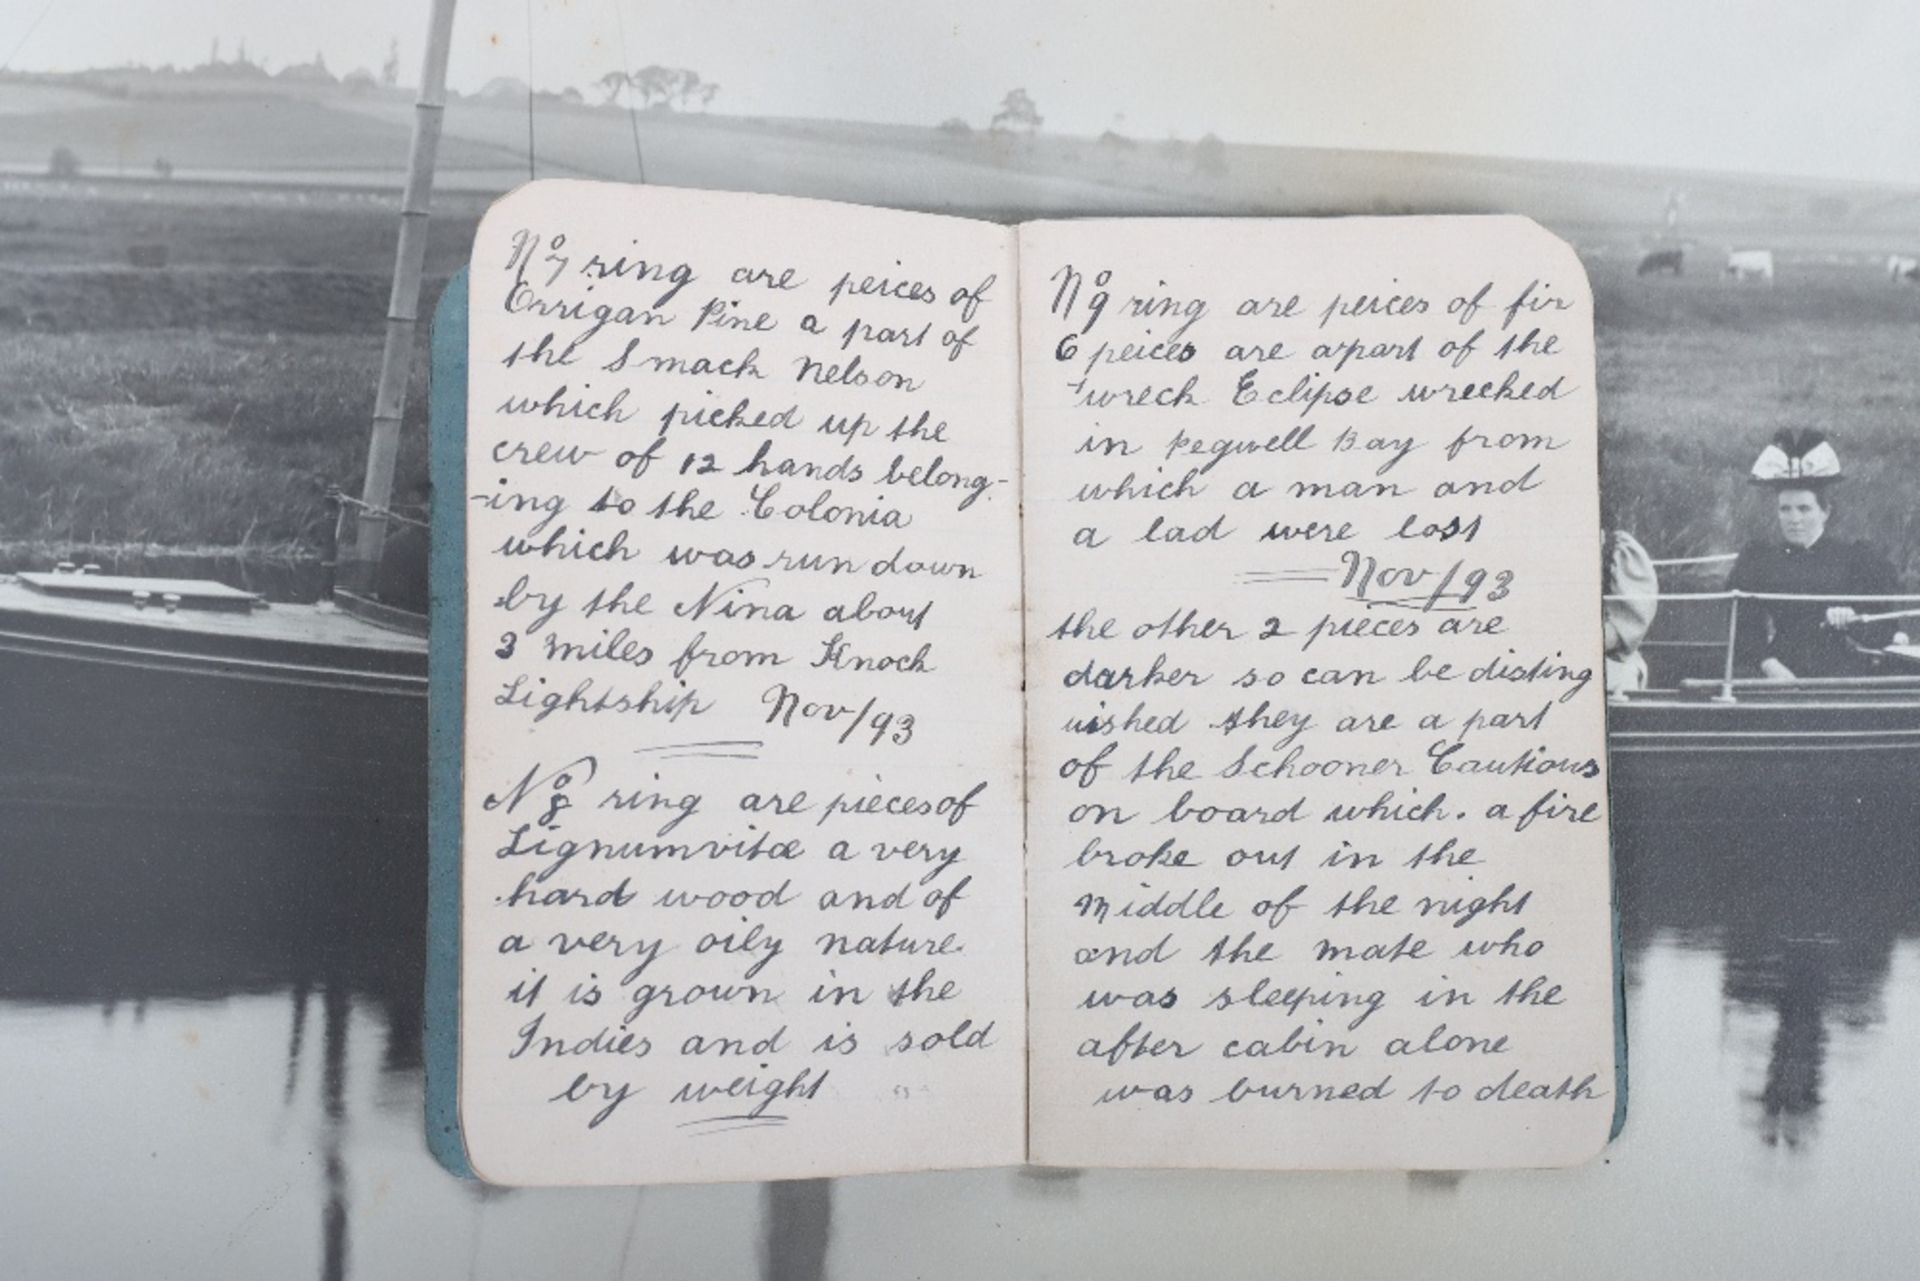 No 7 ring are peices of
Orrigan Pine a part of
the Smack Nelson
which picked up the
crew of 12 hands belong-
-ing to the Colonia
which was run down
by the Nina about
3 miles from Knock
Lightship Nov/93
No 8 ring are pieces of
Lignumvitæ a very
hard wood and of
a very oily nature.
it is grown in the
Indies and is sold
by weight
No 9 ring are peices of fir
6 peices are apart of the
wreck Eclipse wrecked
in Pegwell Bay from
which a man and
a lad were lost
Nov/93
the other 2 pieces are
darker so can be disting
uished they are a part
of the Schooner Cautious
on board which . a fire
broke out in the
Middle of the night
and the mate who
was sleeping in the
after cabin alone
was burned to death